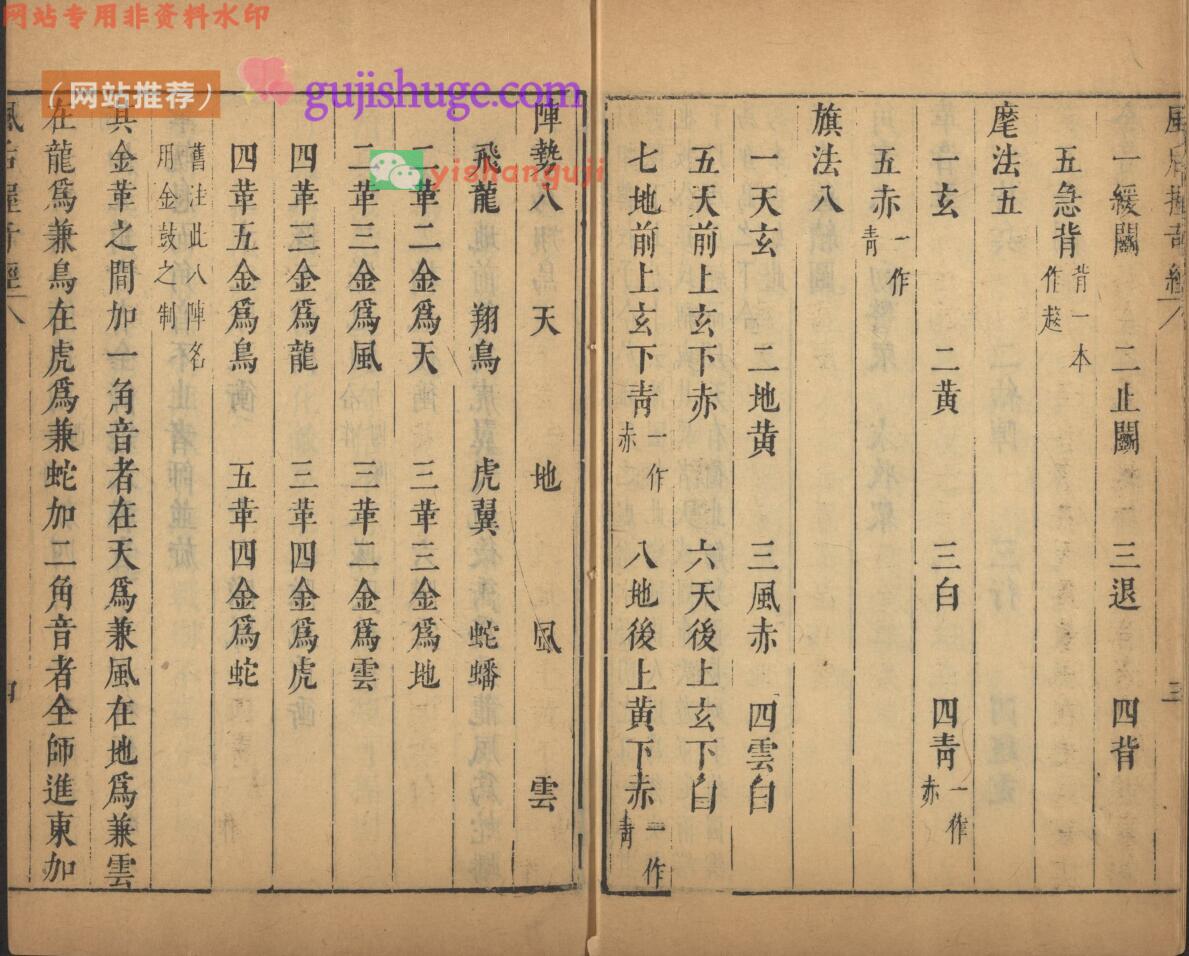 网站专用非资料水印
(网站推荐)
gujishuge.com
yishanguji
一緩鬬　二止鬬　三退　四背
五急背背一本作趍
麾法五
一玄　二黃　三白　四靑一作赤
五赤一作靑
旗法八
一天玄　二地黃　三風赤　四雲白
五天前上玄下赤　六天後上玄下白
七地前上玄下靑一作赤　八地後上黃下赤一作靑
三
陣勢八　天　地　風　雲
飛龍　翔鳥　虎翼　蛇蟠
二革二金爲天　三革三金爲地
二革三金爲風　三革二金爲雲
四革三金爲龍　三革四金爲虎
四革五金爲鳥　五革四金爲蛇
舊注此八陣名用金鼓之制
其金革之間加一角音者在天爲兼風在地爲兼雲
在龍爲兼鳥在虎爲兼蛇加二角音者全師進東加